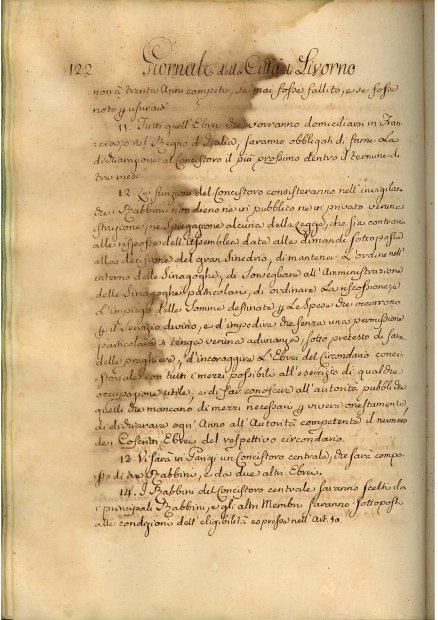 122 Giornale della Città di Livorno
non à trenta Anni compiti, se mai fosse fallito, e se fosse
noto p usuraio.
11. Tutti quell'Ebrei che vorranno domiciliarsi in Fran-
cia, o nel Regno d'Italia, saranno obbligati di farne La
dichiarazione al Concistoro il più prossimo dentro il termine di
tre mesi.
12. Le funzioni del Concistoro consisteranno nell'invigilar
che i Rabbini non dieno ne in pubblico ne in privato veruna
Istruzione, ne Spiegazione alcuna della Legge, che sia contraria
alle risposte dell'Assemblea date alle dimande sottoposte
alla decisione del gran Sinedrio, di mantener L'ordine nell'
interno delle Sinagoghe, di Sorvegliare all'Amministrazione
delle Sinagoghe particolari, di ordinare La riscossione, e
L'impiego delle Somme destinate p Le Spese che occorrono
p il servizio divino, e d'impedire che senza una permissione
particolare si tenga veruna adunanza, sotto pretesto di fare
delle preghiere, d'incoraggire L'Ebrei del Circondario conci-
storiale con tutti i mezzi possibile all'esercizio di qualche
occupazione utile, e di far conoscere all'autorità pubbliche
quelli che mancano di mezzi necessari p vivere onestamente,
di dichiarare ogn'Anno all'Autorità competente il numero
dei Coscritti Ebrei del respettivo circondario.
13. Vi sarà in Parigi un Concistoro centrale, che sarà compo-
sto di tre Rabbini, e da due altri Ebrei.
14. I Rabbini del Concistoro centrale saranno scelti da
i principali Rabbini, e gli altri Membri saranno sottoposti
alle condizioni dell'eligibilità espresse nell'Art. 10.